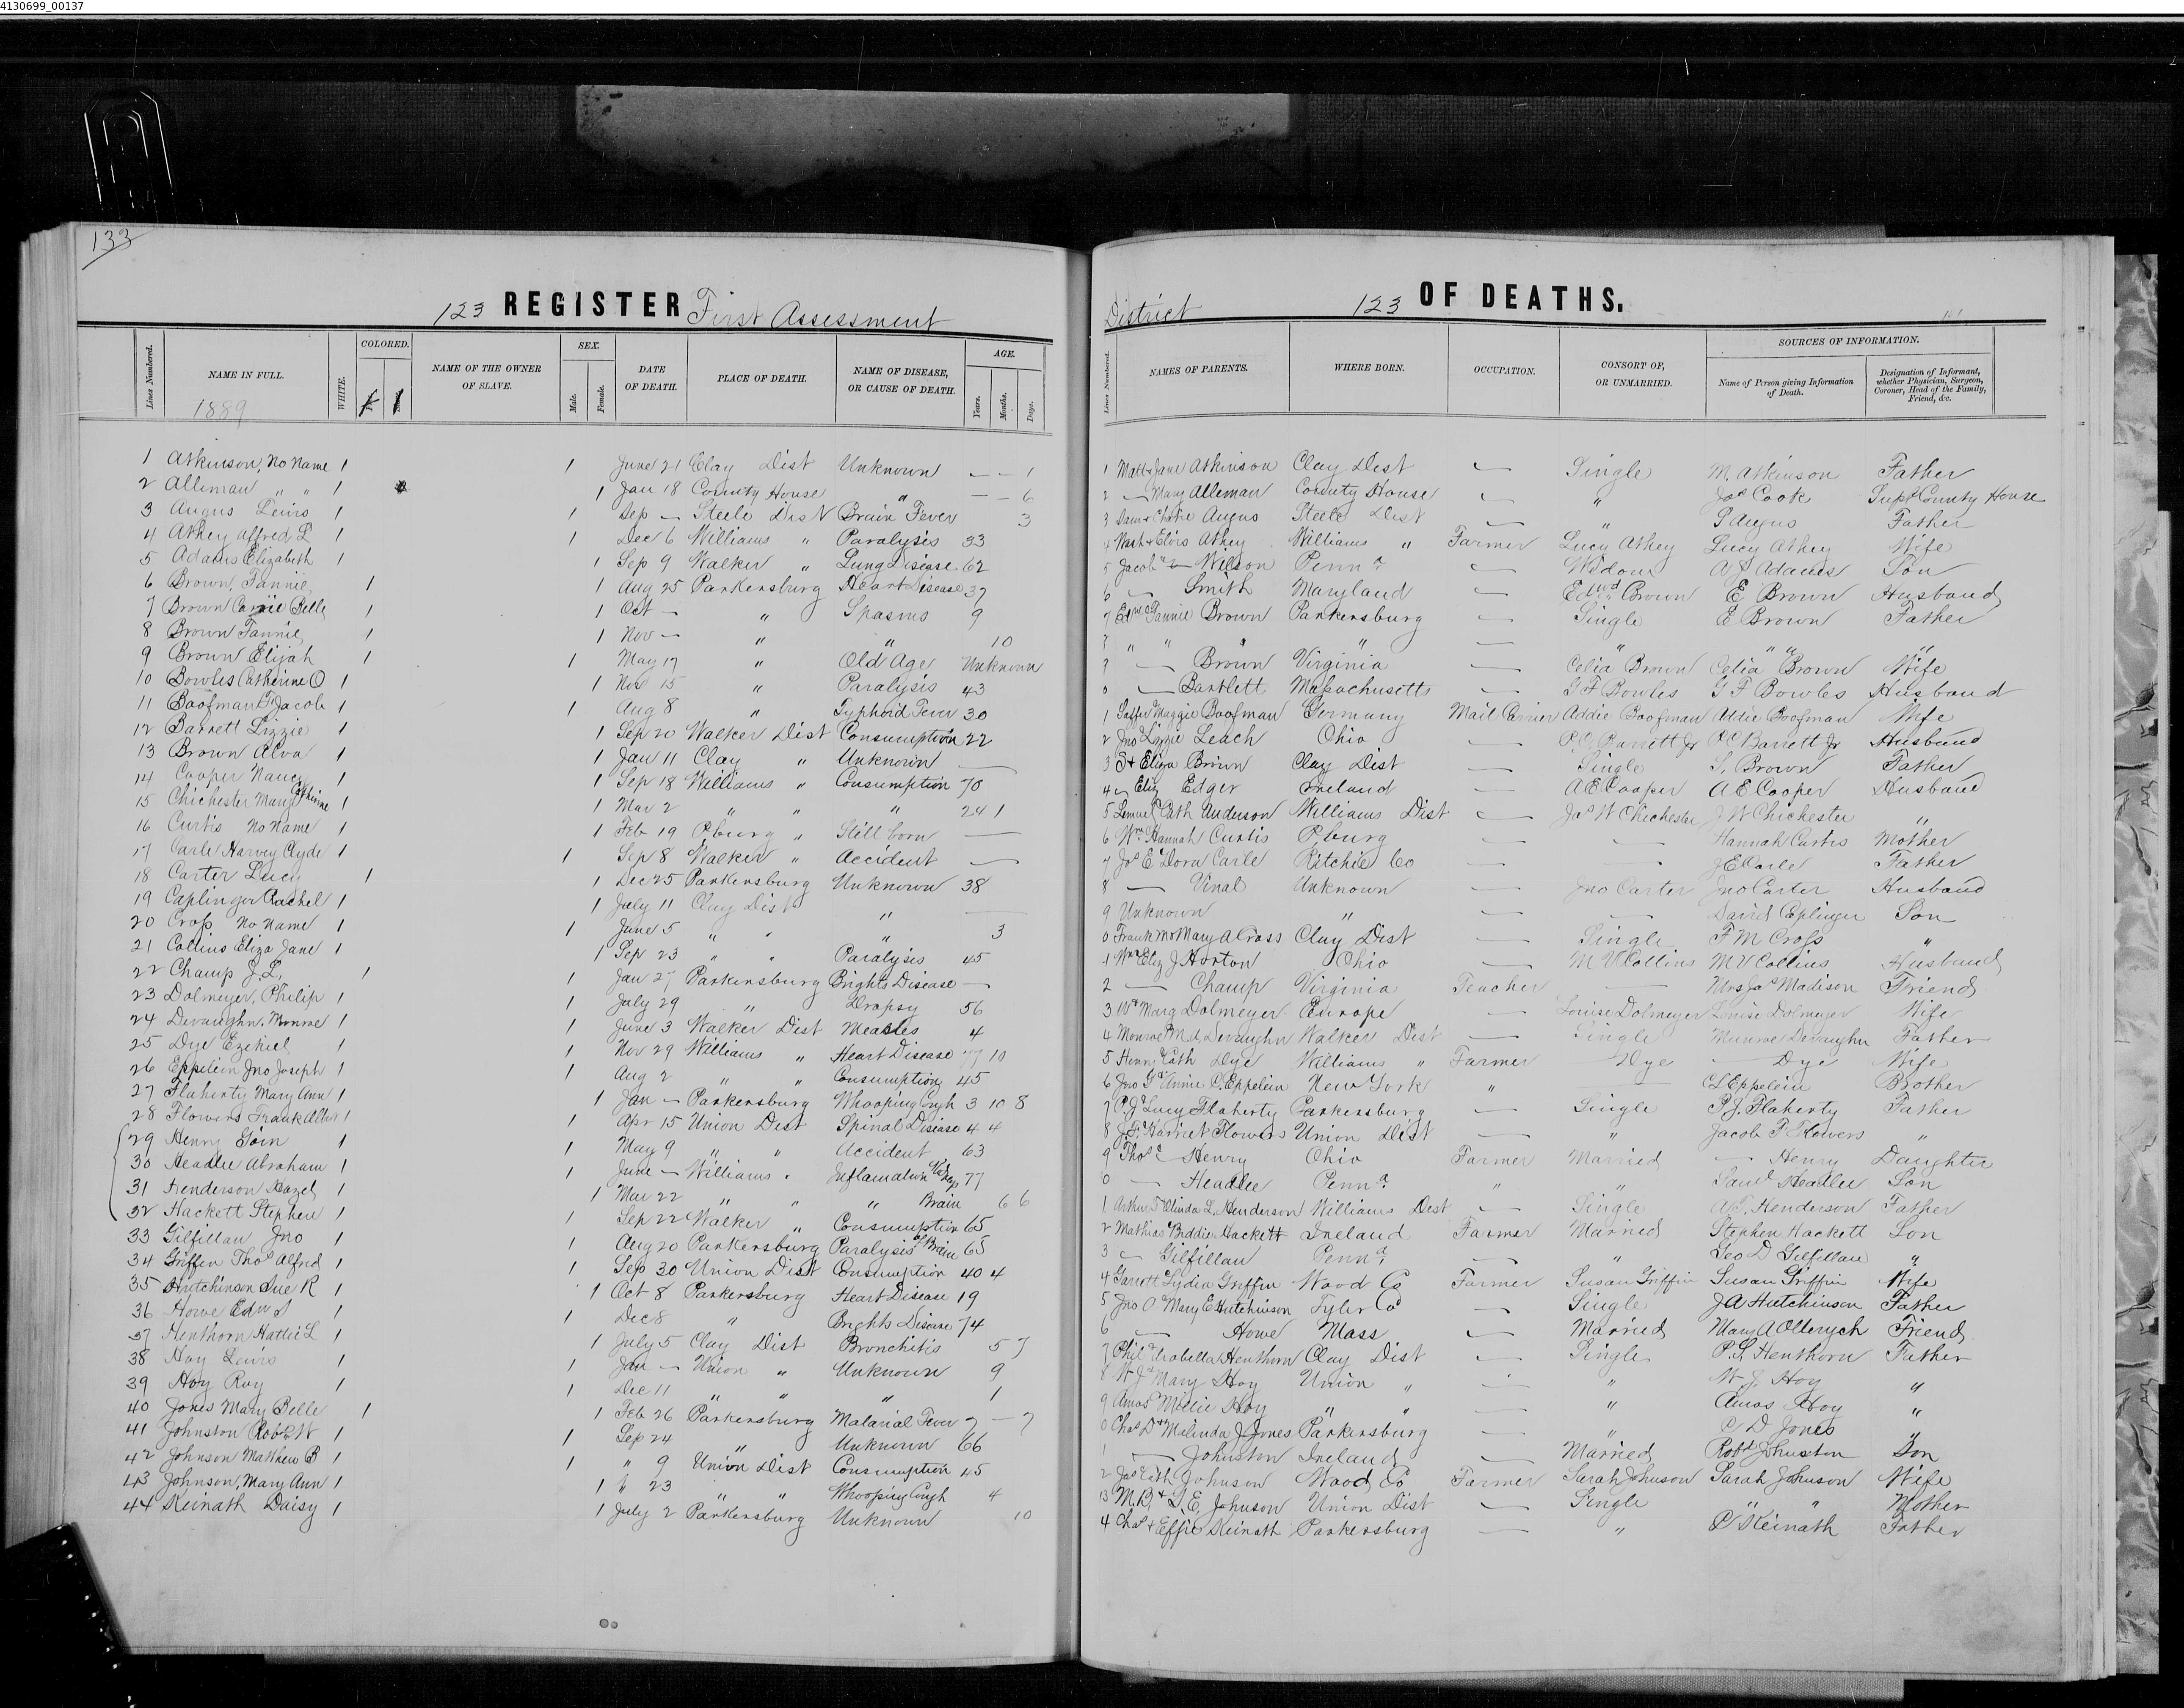 4130699_00137
133
123 REGISTER First Assessment
District 123 OF DEATHS.
Lines Numbered. NAME IN FULL. WHITE. COLORED. NAME OF THE OWNER OF SLAVE. SEX. Male. Female. DATE OF DEATH. PLACE OF DEATH. NAME OF DISEASE, OR CAUSE OF DEATH. AGE. Years. Months. Days.
Lines Numbered. NAMES OF PARENTS. WHERE BORN. OCCUPATION. CONSORT OF, OR UNMARRIED. SOURCES OF INFORMATION. Name of Person giving Information of Death. Designation of Informant, whether Physician, Surgeon, Coroner, Head of the Family, Friend, &c.
1889
1 Atkinson, No Name 1 1 June 21 Clay Dist Unknown — — 1
2 Alleman " " 1 1 Jan 18 County House " — — 6
3 Angus Lewis 1 1 Sep — Steele Dist Brain Fever 3
4 Athey Alfred L 1 1 Dec 6 Williams " Paralysis 33
5 Adams Elizabeth 1 1 Sep 9 Walker " Lung Disease 62
6 Brown, Fannie 1 1 Aug 25 Parkersburg Heart Disease 37
7 Brown Carrie Belle 1 1 Oct — " Spasms 9
8 Brown Fannie 1 1 Nov — " " 10
9 Brown Elijah 1 1 May 17 " Old Age Unknown
10 Bowles Catherine O 1 1 Nov 15 " Paralysis 43
11 Boofman F Jacob 1 1 Aug 8 " Typhoid Fever 30
12 Barrett Lizzie 1 1 Sep 20 Walker Dist Consumption 22
13 Brown Alva 1 1 Jan 11 Clay " Unknown —
14 Cooper Nancy 1 1 Sep 18 Williams " Consumption 70
15 Chichester Mary Catherine 1 1 Mar 2 " " " 24 1
16 Curtis No Name 1 1 Feb 19 Pburg " Still born —
17 Carle Harvey Clyde 1 1 Sep 8 Walker " Accident —
18 Carter Lucy 1 1 Dec 25 Parkersburg Unknown 38
19 Caplinger Rachel 1 1 July 11 Clay Dist " —
20 Cross No Name 1 1 June 5 " " " 3
21 Collins Eliza Jane 1 1 Sep 23 " " Paralysis 45
22 Champ J. L. 1 1 Jan 27 Parkersburg Brights Disease —
23 Dolmeyer, Philip 1 1 July 29 " Dropsy 56
24 Devaughn, Monroe 1 1 June 3 Walker Dist Measles 4
25 Dye Ezekiel 1 1 Nov 29 Williams " Heart Disease 77 10
26 Eppelein Jno Joseph 1 1 Aug 2 " " Consumption 45
27 Flaherty Mary Ann 1 1 Jan — Parkersburg Whooping Cough 3 10 8
28 Flowers Frank Albert 1 1 Apr 15 Union Dist Spinal Disease 4 4
29 Henry 1 1 May 9 " " Accident 63
30 Headlee Abraham 1 1 June — Williams " Inflamation 77
31 Henderson Hazel 1 1 Mar 22 " " " Brain 6 6
32 Hackett Stephen 1 1 Sep 22 Walker " Consumption 65
33 Gilfillan Jno 1 1 Aug 20 Parkersburg Paralysis of Brain 65
34 Griffin Thos Alfred 1 1 Sep 30 Union Dist Consumption 40 4
35 Hutchinson Sue R 1 1 Oct 8 Parkersburg Heart Disease 19
36 Howe Edw S 1 1 Dec 8 " Brights Disease 74
37 Henthorn Hattie L 1 1 July 5 Clay Dist Bronchitis 5 7
38 Hoy Lewis 1 1 Jan — Union " Unknown 9
39 Hoy Roy 1 1 Dec 11 " " " 1
40 Jones Mary Belle 1 1 Feb 26 Parkersburg Malarial Fever 7 — 7
41 Johnston Robt W 1 1 Sep 24 " Unknown 66
42 Johnson Matthew B 1 1 " 9 Union Dist Consumption 45
43 Johnson, Mary Ann 1 1 " 23 " " Whooping Cough 4
44 Keinath Daisy 1 1 July 2 Parkersburg Unknown 10
1 Matt & Jane Atkinson Clay Dist — Single M. Atkinson Father
2 — Mary Alleman County House — " Jas Cook Supt County House
3 Angus Steele Dist — " S Angus Father
4 Wash & Athey Williams " Farmer Lucy Athey Lucy Athey Wife
5 Jacob & — Wilson Penna — Widow A. J. Adams Son
6 — Smith Maryland — Edwd Brown E Brown Husband
7 Edwd & Fannie Brown Parkersburg — Single E Brown Father
8 " " " " — " " " "
9 — Brown Virginia — Celia Brown Celia Brown Wife
0 — Bartlett Massachusetts — G F Bowles G F Bowles Husband
1 Maggie Boofman Germany Mail Carrier Addie Boofman Addie Boofman Wife
2 Jno & Lizzie Leach Ohio — P. C. Barrett Jr P. C. Barrett Jr Husband
3 S & Eliza Brown Clay Dist — Single S. Brown Father
4 — Eliz Edger Ireland — A E Cooper A E Cooper Husband
5 Lemuel & Cath Anderson Williams Dist — Jas W Chichester J W Chichester "
6 Wm & Hannah Curtis Pburg — — Hannah Curtis Mother
7 Jos E & Dora Carle Ritchie Co — — J E Carle Father
8 — Vinal Unknown — Jno Carter Jno Carter Husband
9 Unknown " — — David Caplinger Son
0 Frank M & Mary A Cross Clay Dist — Single F M Cross "
1 Wm & Eliz J Horton Ohio — M V Collins M V Collins Husband
2 — Champ Virginia Teacher — Mrs Jas Madison Friend
3 Marg Dolmeyer Europe — Louise Dolmeyer Louise Dolmeyer Wife
4 Monroe & Devaughn Walker Dist — Single Munroe Devaughn Father
5 Henry & Cath Dye Williams " Farmer — Dye — Dye Wife
6 Jno G & Annie C. Eppelein New York " — Eppelein Brother
7 P. J. & Lucy Flaherty Parkersburg — Single P. J. Flaherty Father
8 J. F. & Harriet Flowers Union Dist — " Jacob F Flowers "
9 Thos & — Henry Ohio Farmer Married — Henry Daughter
0 — Headlee Penna " " Saml Headlee Son
1 Arthur T & Clinda L. Henderson Williams Dist — Single A. T. Henderson Father
2 Mathias & Biddie Hackett Ireland Farmer Married Stephen Hackett Son
3 — Gilfillan Penna — " Geo D Gilfillan "
4 Garrett & Lydia Griffin Wood Co Farmer Susan Griffin Susan Griffin Wife
5 Jno A & Mary E Hutchinson Tyler Co — Single J A Hutchinson Father
6 — Howe Mass — Married Mary A Friend
7 Phil & Arabella Henthorn Clay Dist — Single P. S. Henthorn Father
8 W. J. & Mary Hoy Union " — " W. J. Hoy "
9 Amos & Millie Hoy " " — " Amos Hoy "
0 Chas D & Malinda J Jones Parkersburg — " C D Jones "
1 — Johnston Ireland — Married Robt Johnston Son
2 Jas & Cath Johnson Wood Co Farmer Sarah Johnson Sarah Johnson Wife
3 M. B. & S. E. Johnson Union Dist — Single " " Mother
4 Chas & Effie Keinath Parkersburg — " C Keinath Father